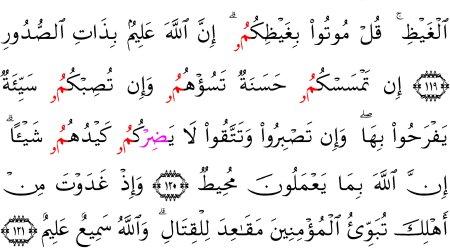 ٱلۡغَيۡظِۚ قُلۡ مُوتُواْ بِغَيۡظِكُمُۥٓۗ إِنَّ ٱللَّهَ عَلِيمُۢ بِذَاتِ ٱلصُّدُورِ
﴿١١٩﴾ إِن تَمۡسَسۡكُمُۥ حَسَنَةٞ تَسُؤۡهُمُۥ وَإِن تُصِبۡكُمُۥ سَيِّئَةٞ
يَفۡرَحُواْ بِهَاۖ وَإِن تَصۡبِرُواْ وَتَتَّقُواْ لَا يَضِرۡكُمُۥ كَيۡدُهُمُۥ شَيۡـًٔاۗ
إِنَّ ٱللَّهَ بِمَا يَعۡمَلُونَ مُحِيطٞ ﴿١٢٠﴾ وَإِذۡ غَدَوۡتَ مِنۡ
أَهۡلِكَ تُبَوِّئُ ٱلۡمُؤۡمِنِينَ مَقَٰعِدَ لِلۡقِتَالِۗ وَٱللَّهُ سَمِيعٌ عَلِيمٌ ﴿١٢١﴾